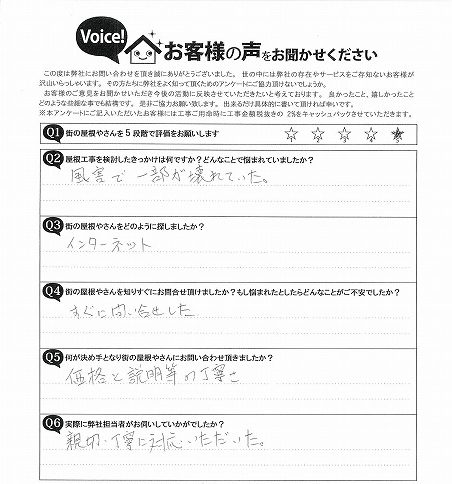 Voice!
お客様の声をお聞かせください
この度は弊社にお問い合わせを頂き誠にありがとうございました。世の中には弊社の存在やサービスをご存知ないお客様が
沢山いらっしゃいます。その方たちに弊社をよく知って頂くためのアンケートにご協力頂けないでしょうか。
お客様のご意見をお聞かせいただき今後の活動に反映させていただきたいと考えております。良かったこと、嬉しかったこと
どのような些細な事でも結構です。是非ご協力お願い致します。出来るだけ具体的に書いて頂ければ幸いです。
※本アンケートにご記入いただいたお客様には工事ご用命時に工事金額税抜きの2%をキャッシュバックさせていただきます。
Q1 街の屋根やさんを5段階で評価をお願いします ☆ ☆ ☆ ☆ ★
Q2 屋根工事を検討したきっかけは何ですか?どんなことで悩まれていましたか?
風害で一部が壊れていた。
Q3 街の屋根やさんをどのように探しましたか?
インターネット
Q4 街の屋根やさんを知りすぐにお問合せ頂けましたか?もし悩まれたとしたらどんなことがご不安でしたか?
すぐに問い合せした
Q5 何が決め手となり街の屋根やさんにお問い合わせ頂きましたか?
価格と説明等の丁寧さ
Q6 実際に弊社担当者がお伺いしていかがでしたか?
親切、丁寧に対応いただいた。